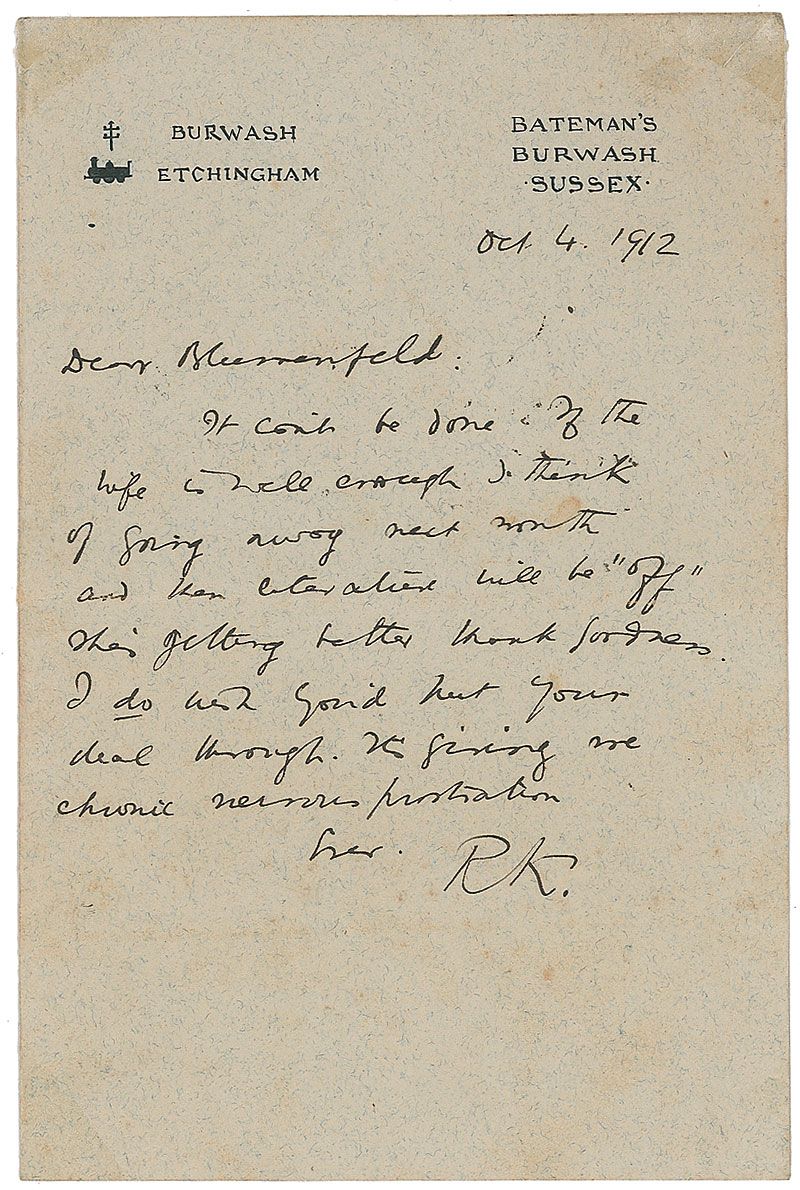 BURWASH
ETCHINGHAM
BATEMAN'S
BURWASH
·SUSSEX·
Oct 4. 1912
Dear Blumenfeld:
It can't be done. If the
wife is well enough I think
of going away next month
and then literature will be "off"
She's getting better thank goodness.
I do wish you'd put your
deal through. It's giving me
chronic nervous prostration
Ever.
RK.